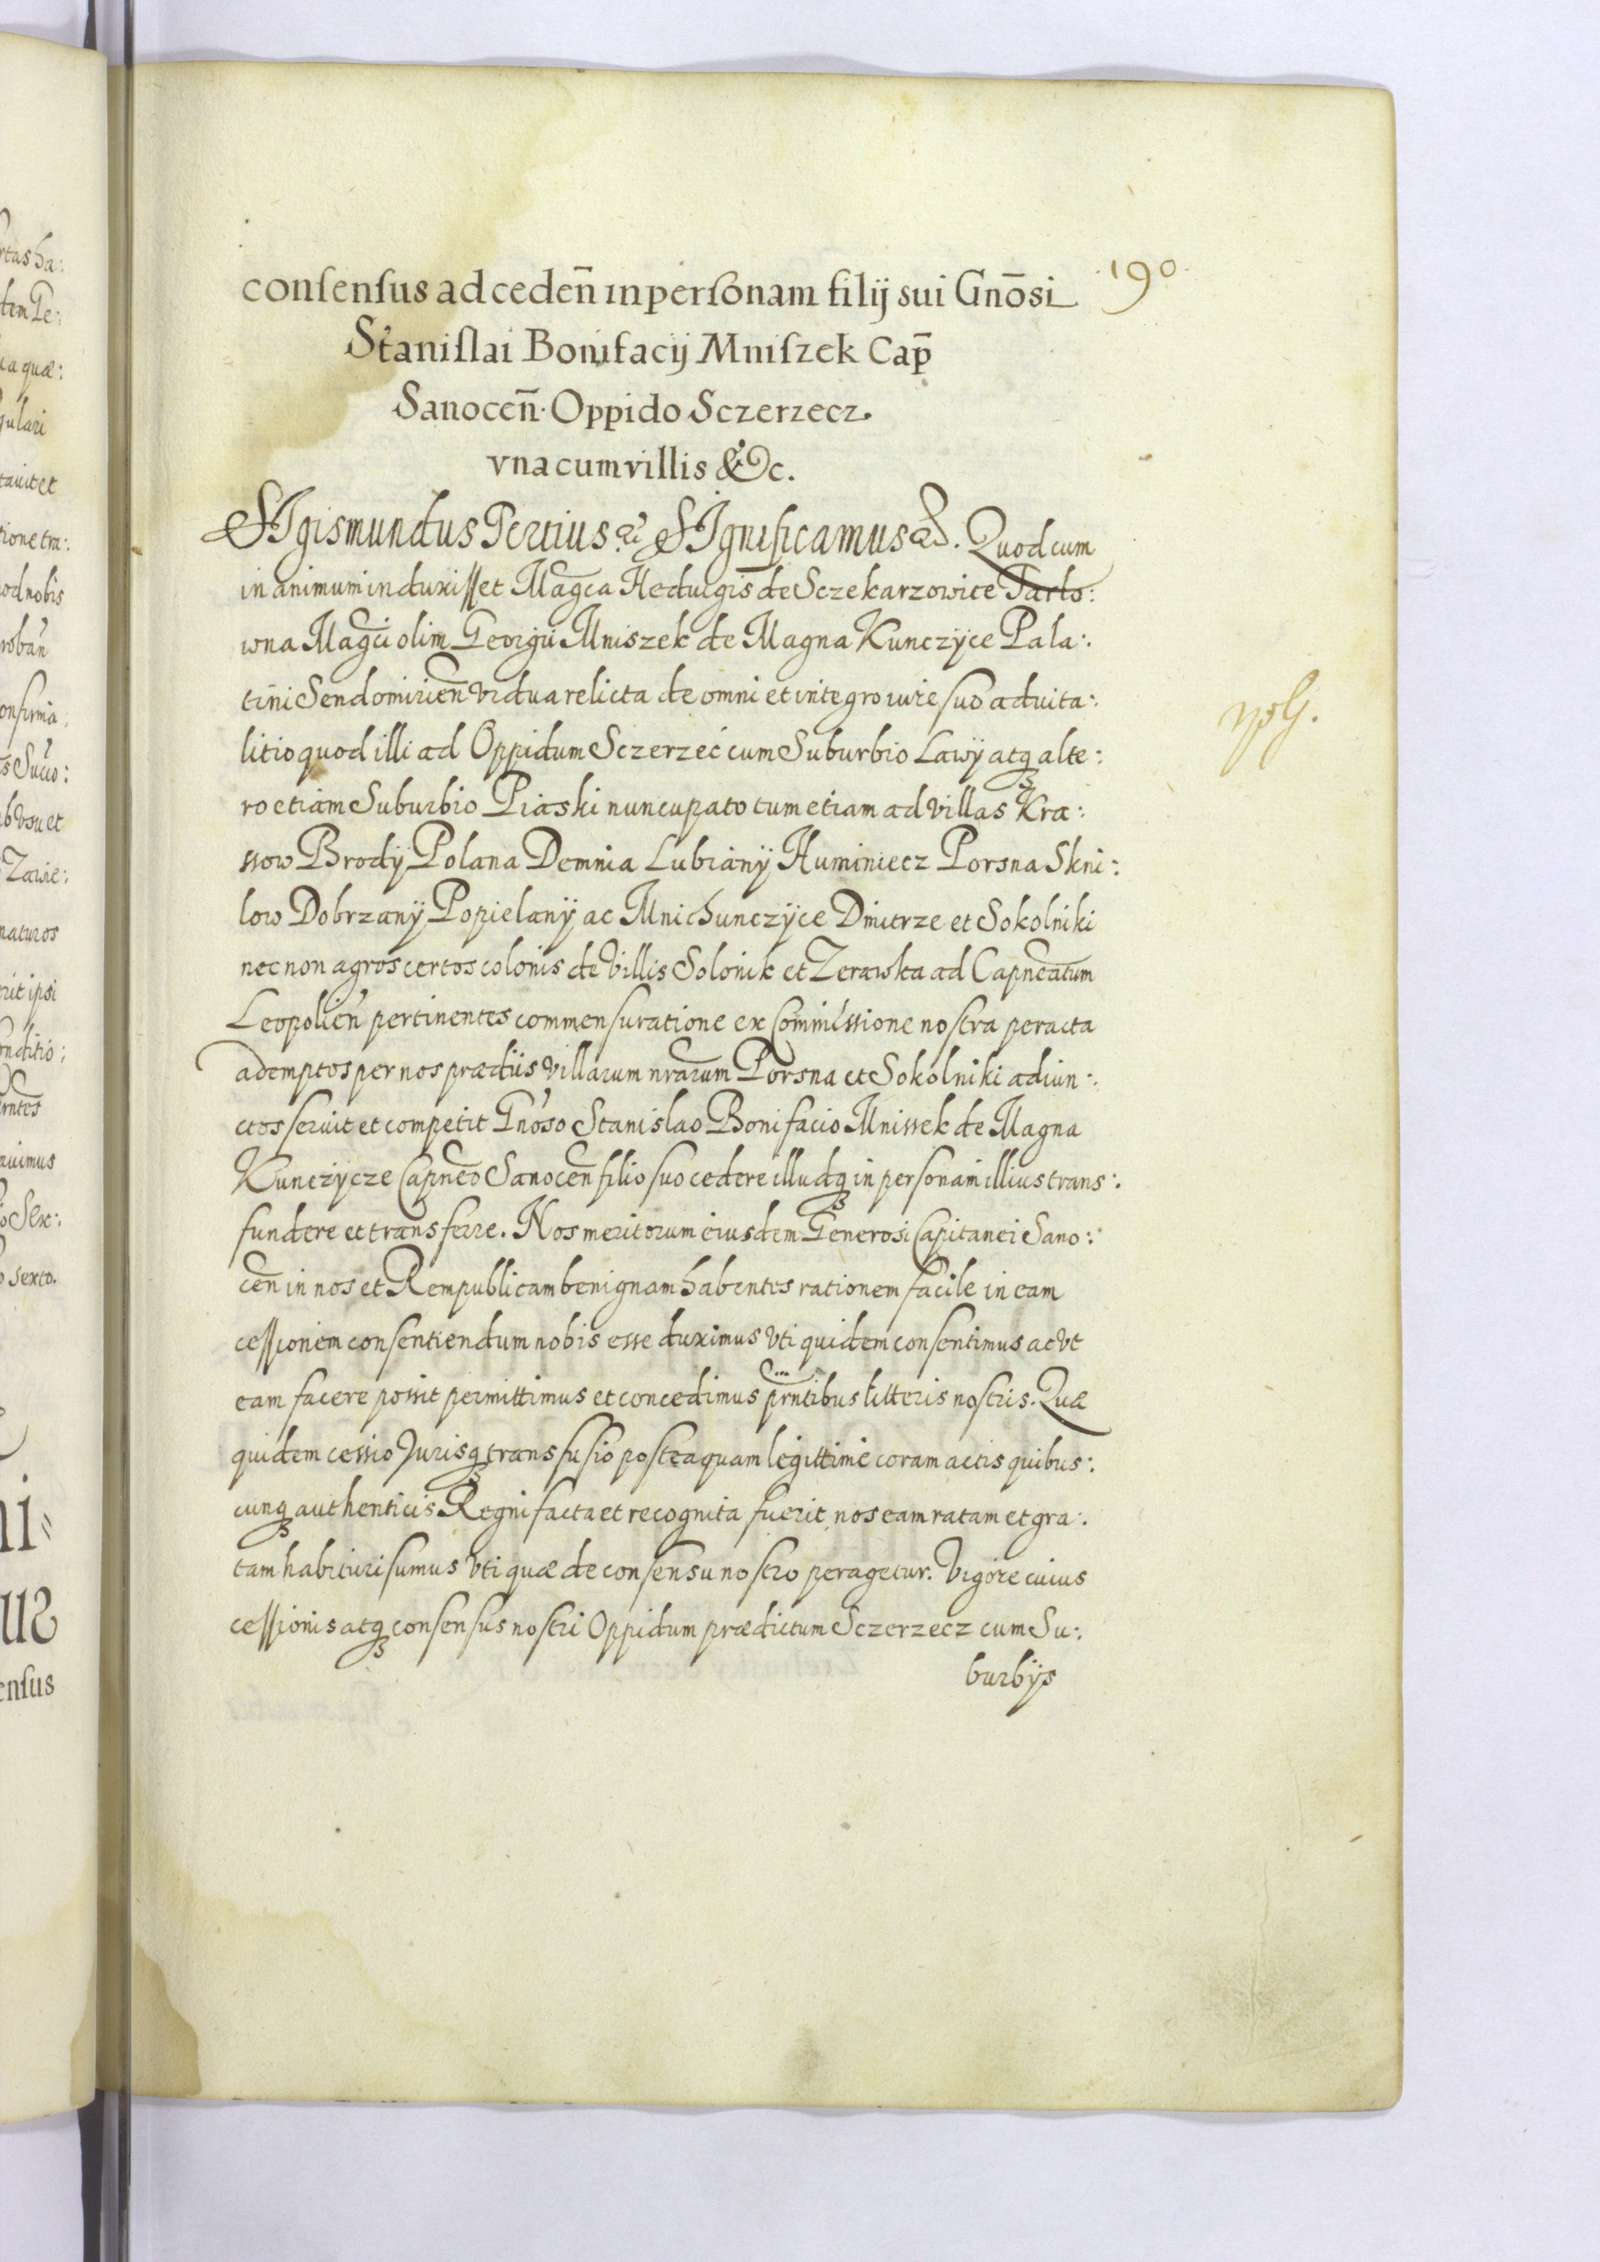 190
consensus ad ceden̄ in personam filij sui Gnōsi
Stanislai Bonifacij Mniszek Cap̄
Sanocen̄. Oppido Sczerzecz.
vna cum villis &c.
SIgismundus Tertius &c SIgnificamus &c. Quod cum
in animum induxisset Mag̃ca Heduigis de Sczekarzowice Tarlo:
wna Mag̃ci olim Georgii Mniszek de Magna Kunczÿce Pala:
tini Sendomirien̄ vidua relicta de omni et integro iure suo aduita:
litio quod illi ad Oppidum Sczerzec cum Suburbio Lawÿ atq alte:
ro etiam Suburbio Piaski nuncupato tum etiam ad villas Kra:
ssow Brodÿ Polana Demnia Lubianÿ Huminiecz Porsna Skni:
low Dobrzanÿ Popielanÿ ac Mnichunczÿce Dmitrze et Sokolniki
nec non agros certos colonis de Villis Solonk et Zerawka ad Capneatum
Leopolien̄ pertinentes commensuratione ex Commissione nostra peracta
ademptos per nos prædiis villarum nrarum Porsna et Sokolniki adiun:
ctos seruit et competit Gnoso Stanislao Bonifacio Mnissek de Magna
Kunczÿcze Capneo Sanocen̄ filio suo cedere illudq in personam illius trans:
fundere et transferre. Nos meritorum eiusdem Generosi Capitanei Sano:
cen̄ in nos et Rempublicam benignam habentes rationem facile in eam
cessionem consentiendum nobis esse duximus vti quidem consentimus ac vt
eam facere possit permittimus et concedimus prntibus litteris nostris. Quæ
quidem cessio Jurisq transfusio posteaquam legittime coram actis quibus:
cunq authenticis Regni facta et recognita fuerit nos eam ratam et gra:
tam habituri sumus vti quæ de consensu nostro peragetur. Vigore cuius
cessionis atq consensus nostri Oppidum prædictum Sczerzecz cum Su:
burbÿs